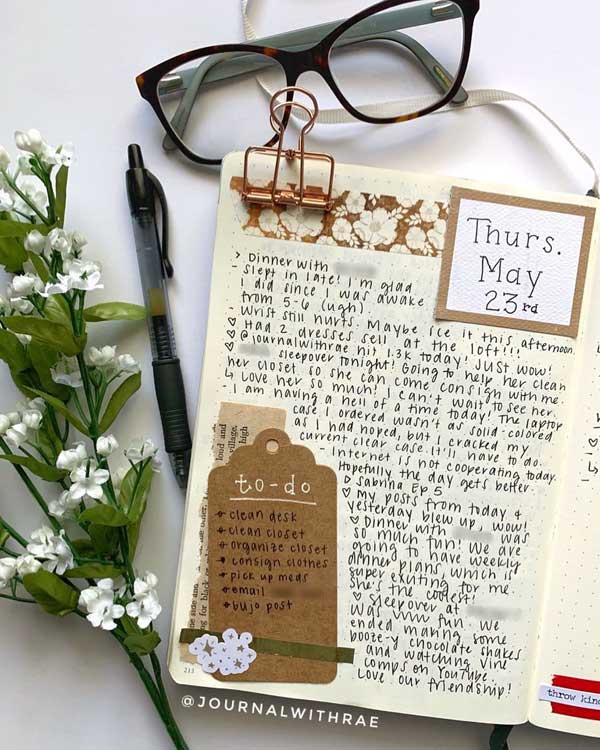 Thurs.
May
23rd
> Dinner with
- slept in late! I'm glad
I did since I was awake
from 5-6 (ugh)
- Wrist still hurts. Maybe ice it this afternoon.
♡ Had 2 dresses sell at the loft!!!
♡ @journalwithrae hit 1.3k today! Just wow!
♡ sleepover tonight! Going to help her clean
her closet so she can come consign with me.
↳ Love her so much! I can't wait to see her.
- I am having a hell of a time today. The laptop
case I ordered wasn't as solid-colored
as I had hoped, but I cracked my
current clear case. It'll have to do.
- Internet is not cooperating today.
Hopefully the day gets better.
▷ Sabrina Ep 5
♡ My posts from today &
yesterday blew up, wow!
♡ Dinner with was
so much fun! We are
going to have weekly
dinner plans, which is
super exciting for me.
She's the coolest!
♡ Sleepover at
was fun. We
ended making some
booze-y chocolate shakes
and watching Vine
comps on YouTube.
Love our friendship!
loud and
village,
high
to-do
clean desk
clean closet
organize closet
consign clothes
pick up meds
email
bujo post
213
throw kind
@JOURNALWITHRAE